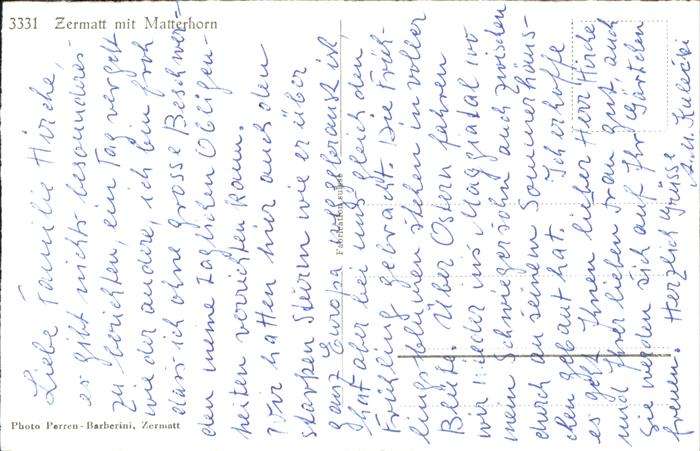 3331 Zermatt mit Matterhorn
Liebe Familie Hirche,
es gibt nichts besonderes
zu berichten, ein Tag vergeht
wie der andere, ich bin froh
dass ich ohne grosse Beschwer-
den meine täglichen Obligen-
heiten verrichten kann.
Wir hatten hier auch den
starken Sturm wie er über
ganz Europa gebraust ist,
hat aber bei uns gleich den
Frühling gebracht. Die Früh-
lingsblumen stehen in voller
Blüte. Über Ostern fahren
wir wieder ins Maggiatal wo
mein Schwiegersohn auch zwischen
durch an seinem Sommerhäus-
chen gebaut hat. Ich hoffe
es geht Ihnen lieber Herr Hirche
und Ihrer lieben Frau gut, auch
Sie werden sich auf Ihr Gärtchen
freuen. Herzlich Grüsse
Fabrication suisse
Photo Perren-Barberini, Zermatt